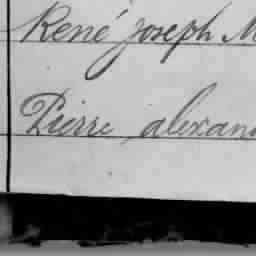 René Joseph M
Pierre alexan